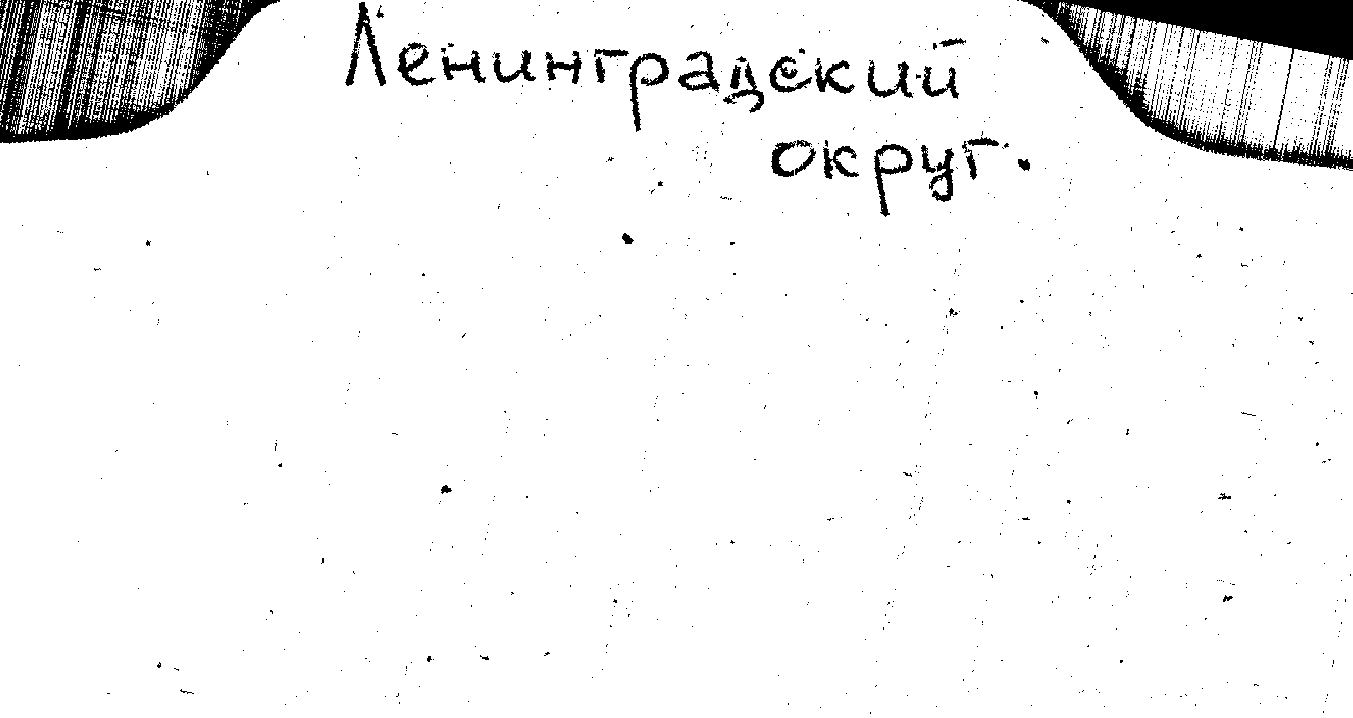 Ленинградский
округ.